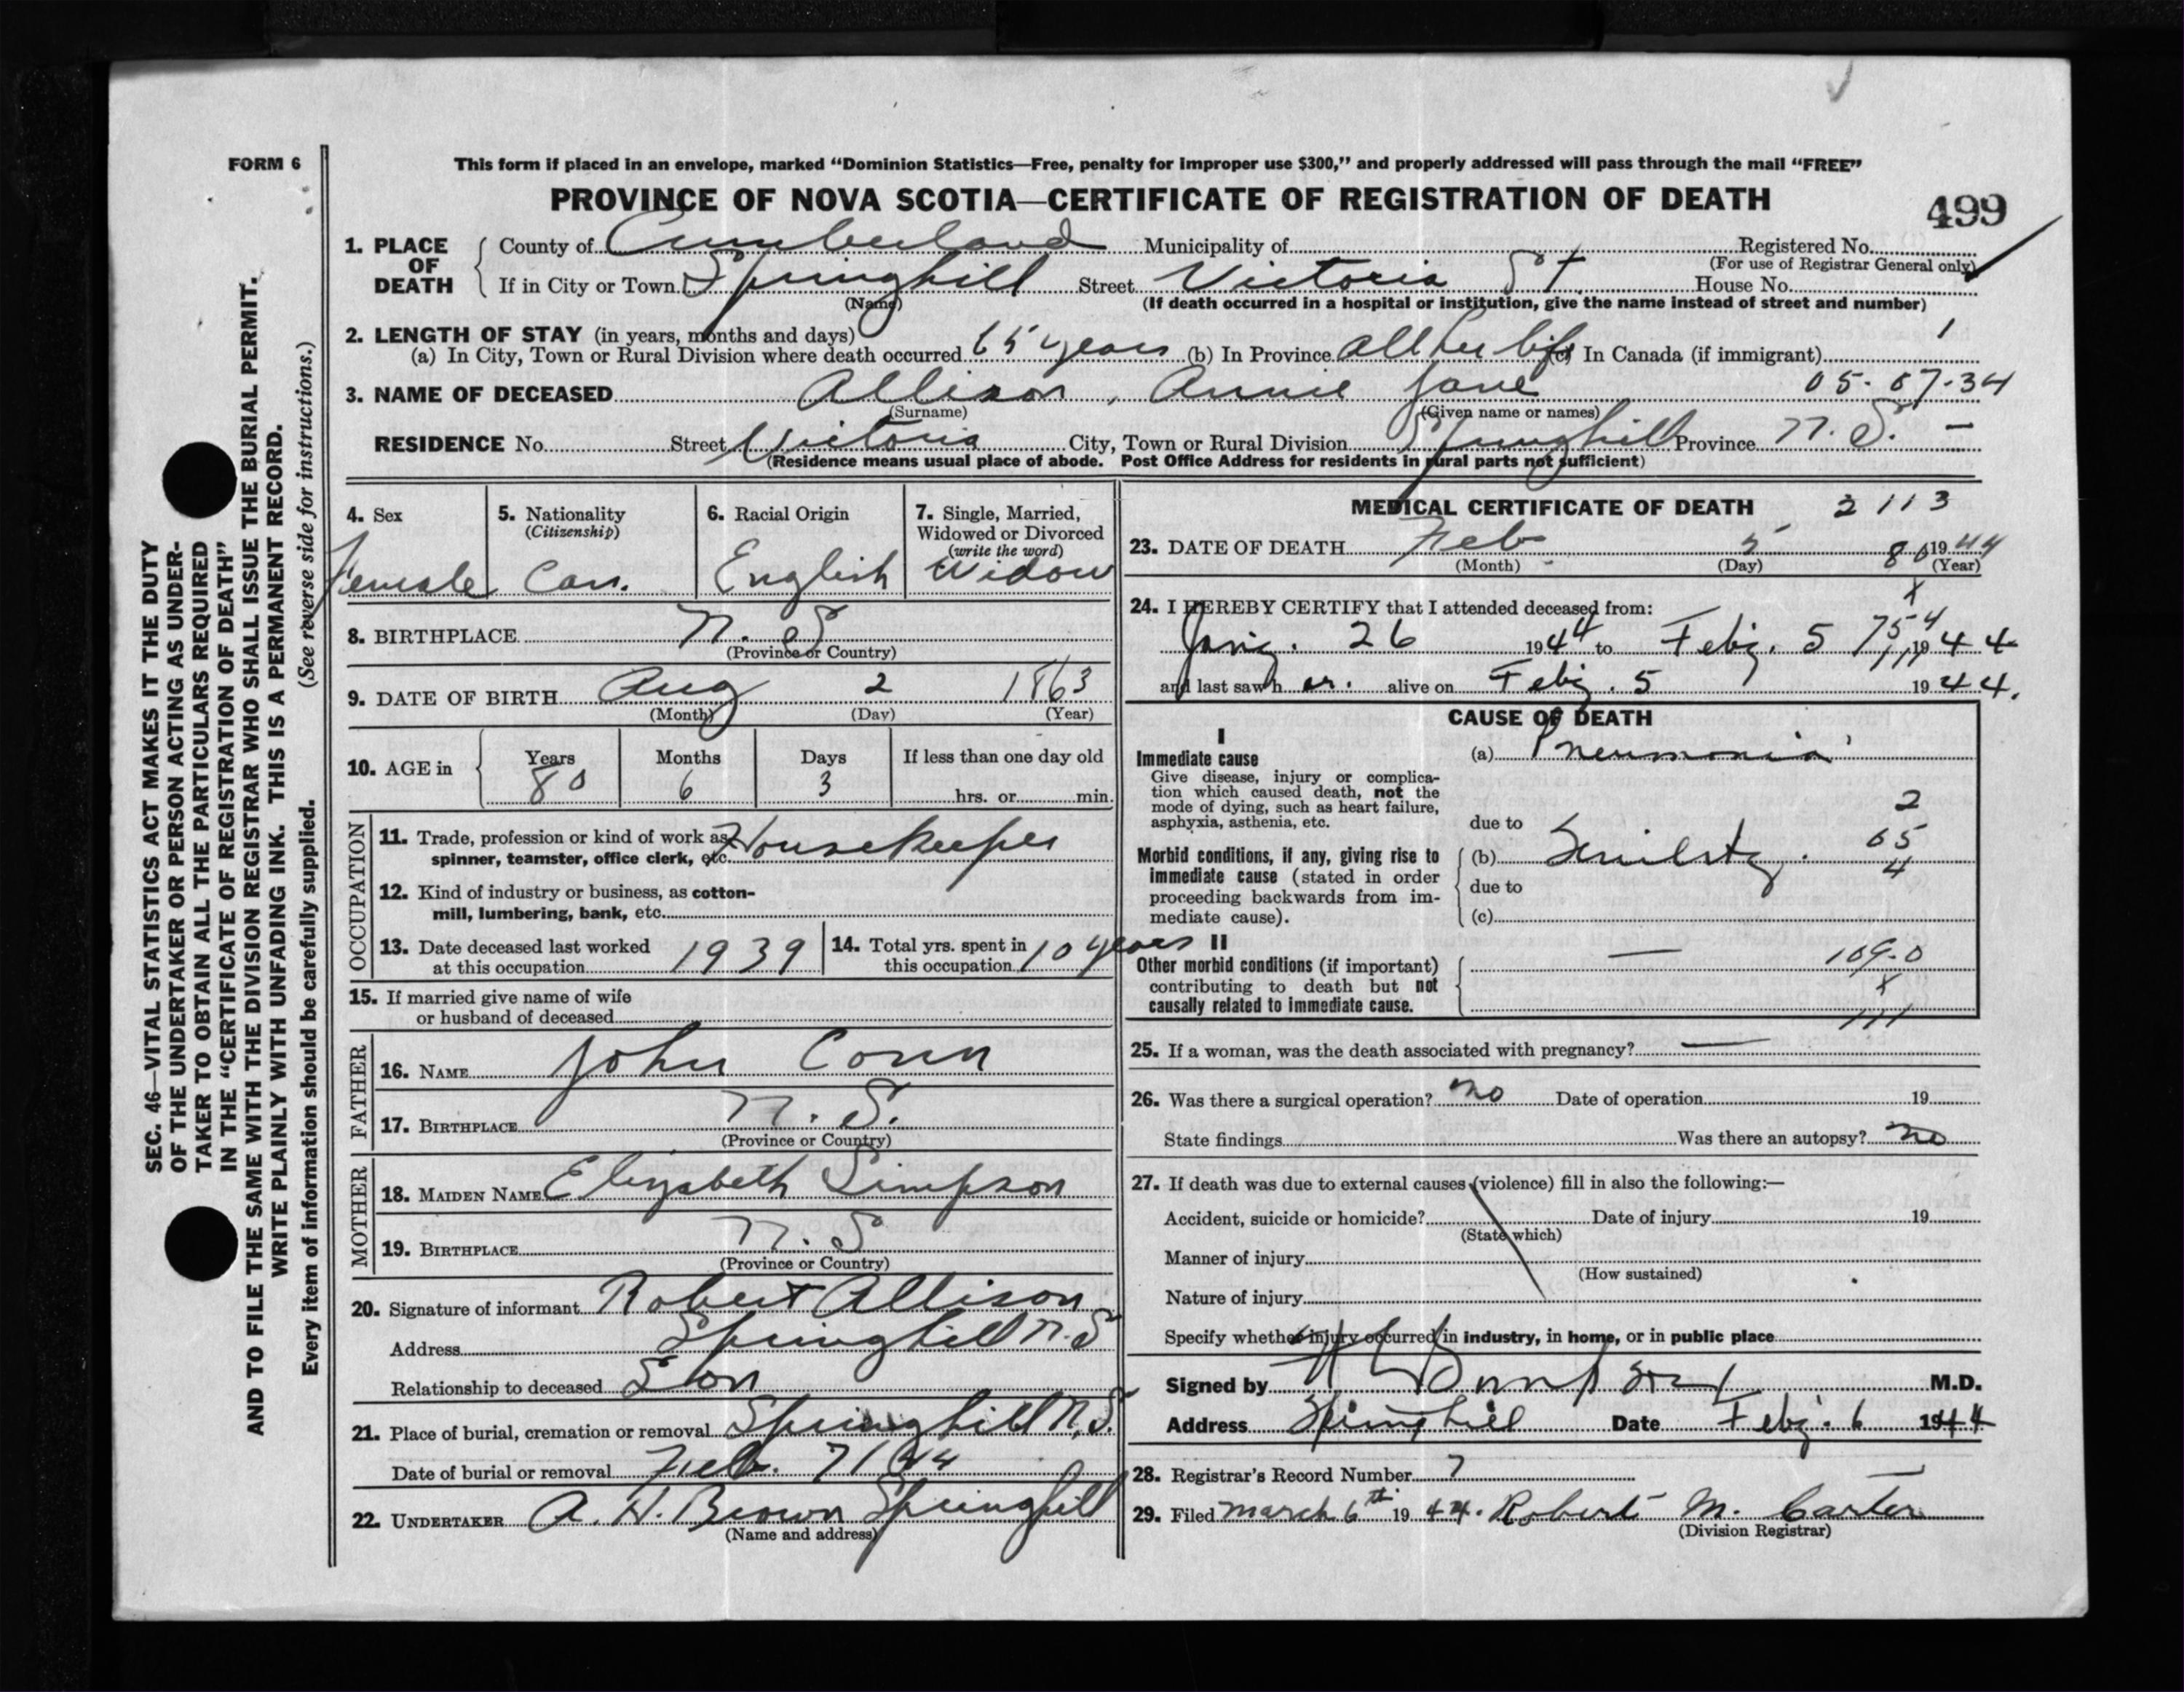 FORM 6
This form if placed in an envelope, marked "Dominion Statistics—Free, penalty for improper use $300," and properly addressed will pass through the mail "FREE"
PROVINCE OF NOVA SCOTIA—CERTIFICATE OF REGISTRATION OF DEATH
499
SEC. 46—VITAL STATISTICS ACT MAKES IT THE DUTY
OF THE UNDERTAKER OR PERSON ACTING AS UNDER-
TAKER TO OBTAIN ALL THE PARTICULARS REQUIRED
IN THE "CERTIFICATE OF REGISTRATION OF DEATH"
AND TO FILE THE SAME WITH THE DIVISION REGISTRAR WHO SHALL ISSUE THE BURIAL PERMIT.
WRITE PLAINLY WITH UNFADING INK. THIS IS A PERMANENT RECORD.
Every item of information should be carefully supplied. (See reverse side for instructions.)
1. PLACE OF DEATH County of Cumberland Municipality of Registered No.
(For use of Registrar General only)
If in City or Town Springhill Street Victoria St House No.
(Name) (If death occurred in a hospital or institution, give the name instead of street and number)
2. LENGTH OF STAY (in years, months and days)
(a) In City, Town or Rural Division where death occurred 65 years (b) In Province all her life (c) In Canada (if immigrant) 1
3. NAME OF DECEASED Allison, Annie Jane 05-07-34
(Surname) (Given name or names)
RESIDENCE No. Street Victoria City, Town or Rural Division Springhill Province N. S. -
(Residence means usual place of abode. Post Office Address for residents in rural parts not sufficient)
4. Sex
Female
5. Nationality
(Citizenship)
Can.
6. Racial Origin
English
7. Single, Married,
Widowed or Divorced
(write the word)
Widow
8. BIRTHPLACE N. S
(Province or Country)
9. DATE OF BIRTH Aug 2 1863
(Month) (Day) (Year)
10. AGE in Years Months Days If less than one day old
80 6 3 hrs. or min.
OCCUPATION
11. Trade, profession or kind of work as
spinner, teamster, office clerk, etc. Housekeeper
12. Kind of industry or business, as cotton-
mill, lumbering, bank, etc.
13. Date deceased last worked
at this occupation 1939
14. Total yrs. spent in
this occupation 10 years
15. If married give name of wife
or husband of deceased
FATHER
16. NAME John Conn
17. BIRTHPLACE N. S.
(Province or Country)
MOTHER
18. MAIDEN NAME Elizabeth Simpson
19. BIRTHPLACE N. S
(Province or Country)
20. Signature of informant Robert Allison
Address Springhill N. S
Relationship to deceased Son
21. Place of burial, cremation or removal Springhill N. S.
Date of burial or removal Feb. 7/44
22. UNDERTAKER A. H. Brown Springhill
(Name and address)
MEDICAL CERTIFICATE OF DEATH 2113
23. DATE OF DEATH Feb 5 80 1944
(Month) (Day) (Year)
x
24. I HEREBY CERTIFY that I attended deceased from:
26 1944 to 5 754 1944
and last saw h er. alive on 5 1944.
CAUSE OF DEATH
I
Immediate cause
Give disease, injury or complica-
tion which caused death, not the
mode of dying, such as heart failure,
asphyxia, asthenia, etc.
(a) Pneumonia
2
due to
Morbid conditions, if any, giving rise to
immediate cause (stated in order
proceeding backwards from im-
mediate cause).
(b) Senility. 65
due to 4
(c)
II
Other morbid conditions (if important)
contributing to death but not
causally related to immediate cause.
— 109-0
x
111
25. If a woman, was the death associated with pregnancy? —
26. Was there a surgical operation? no Date of operation 19
State findings Was there an autopsy? no
27. If death was due to external causes (violence) fill in also the following:—
Accident, suicide or homicide? Date of injury 19
(State which)
Manner of injury
(How sustained)
Nature of injury
Specify whether injury occurred in industry, in home, or in public place
Signed by M.D.
Address Springhill Date 6 1944
28. Registrar's Record Number 7
29. Filed March 6th 1944. Robert M. Carter
(Division Registrar)